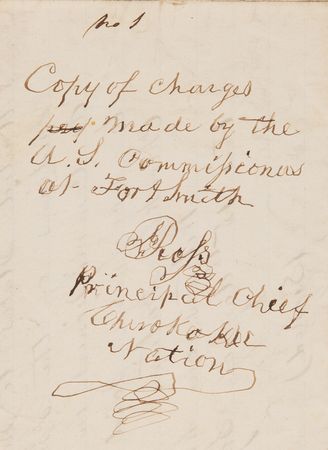 No 1
Copy of Charges
made by the
U. S. Commissioners
at Fort Smith
Ross
Principal Chief
Cherokee
Nation